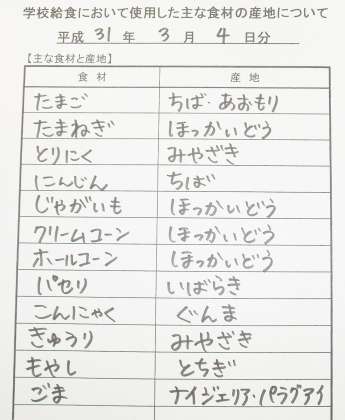 学校給食において使用した主な食材の産地について
平成 31 年 3 月 4 日分
【主な食材と産地】
食材 産地
たまご ちば・あおもり
たまねぎ ほっかいどう
とり にく みやざき
にんじん ちば
じゃがいも ほっかいどう
クリームコーン ほっかいどう
ホールコーン ほっかいどう
パセリ いばらき
こんにゃく ぐんま
きゅうり みやざき
もやし とちぎ
ごま ナイジェリア・パラグアイ